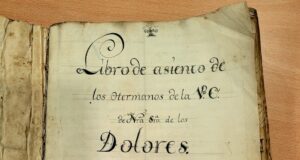 Libro de asiento de
los Hermanos de la Vᵉ. C.
de Nrã. Srã. de los
Dolores.